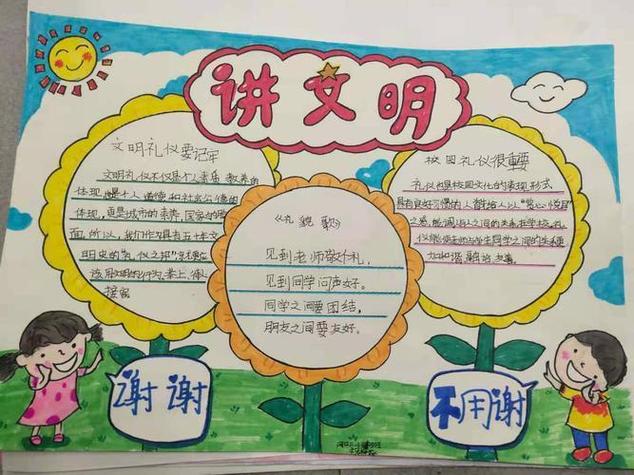 讲文明
文明礼仪要记牢
文明礼仪不仅是个人素质、教养的
体现,也是个人道德和社会公德的
体现,更是城市的素养、国家的脸
面,所以,我们作为具有五千年文
明史的"礼仪之邦"
该用文明的行为举止,待人
接客
《礼貌歌》
见到老师敬个礼,
见到同学问声好。
同学之间要团结,
朋友之间要友好。
校园礼仪很重要
礼仪也是校园文化的表现形式,
具有良好习惯的人,首给人以"赏心悦目"
之感,能调人之间的关系,在学校,礼
仪能使老师与学生同学之间的关系更
加和谐、融洽、
谢谢
不用谢